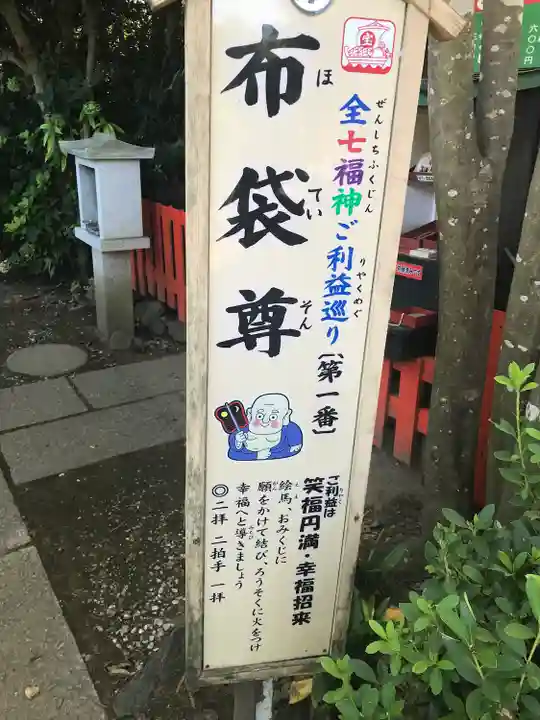 宝
全七福神ご利益巡り〔第一番〕
ぜんしちふくじん
りやくめぐ
布袋尊
ほていそん
ご利益は
りやく
笑福円満・幸福招来
絵馬、おみくじに
願をかけて結び、ろうそくに火をつけ
幸福へと導きましょう
◎二拝 二拍手 一拝
六〇〇円